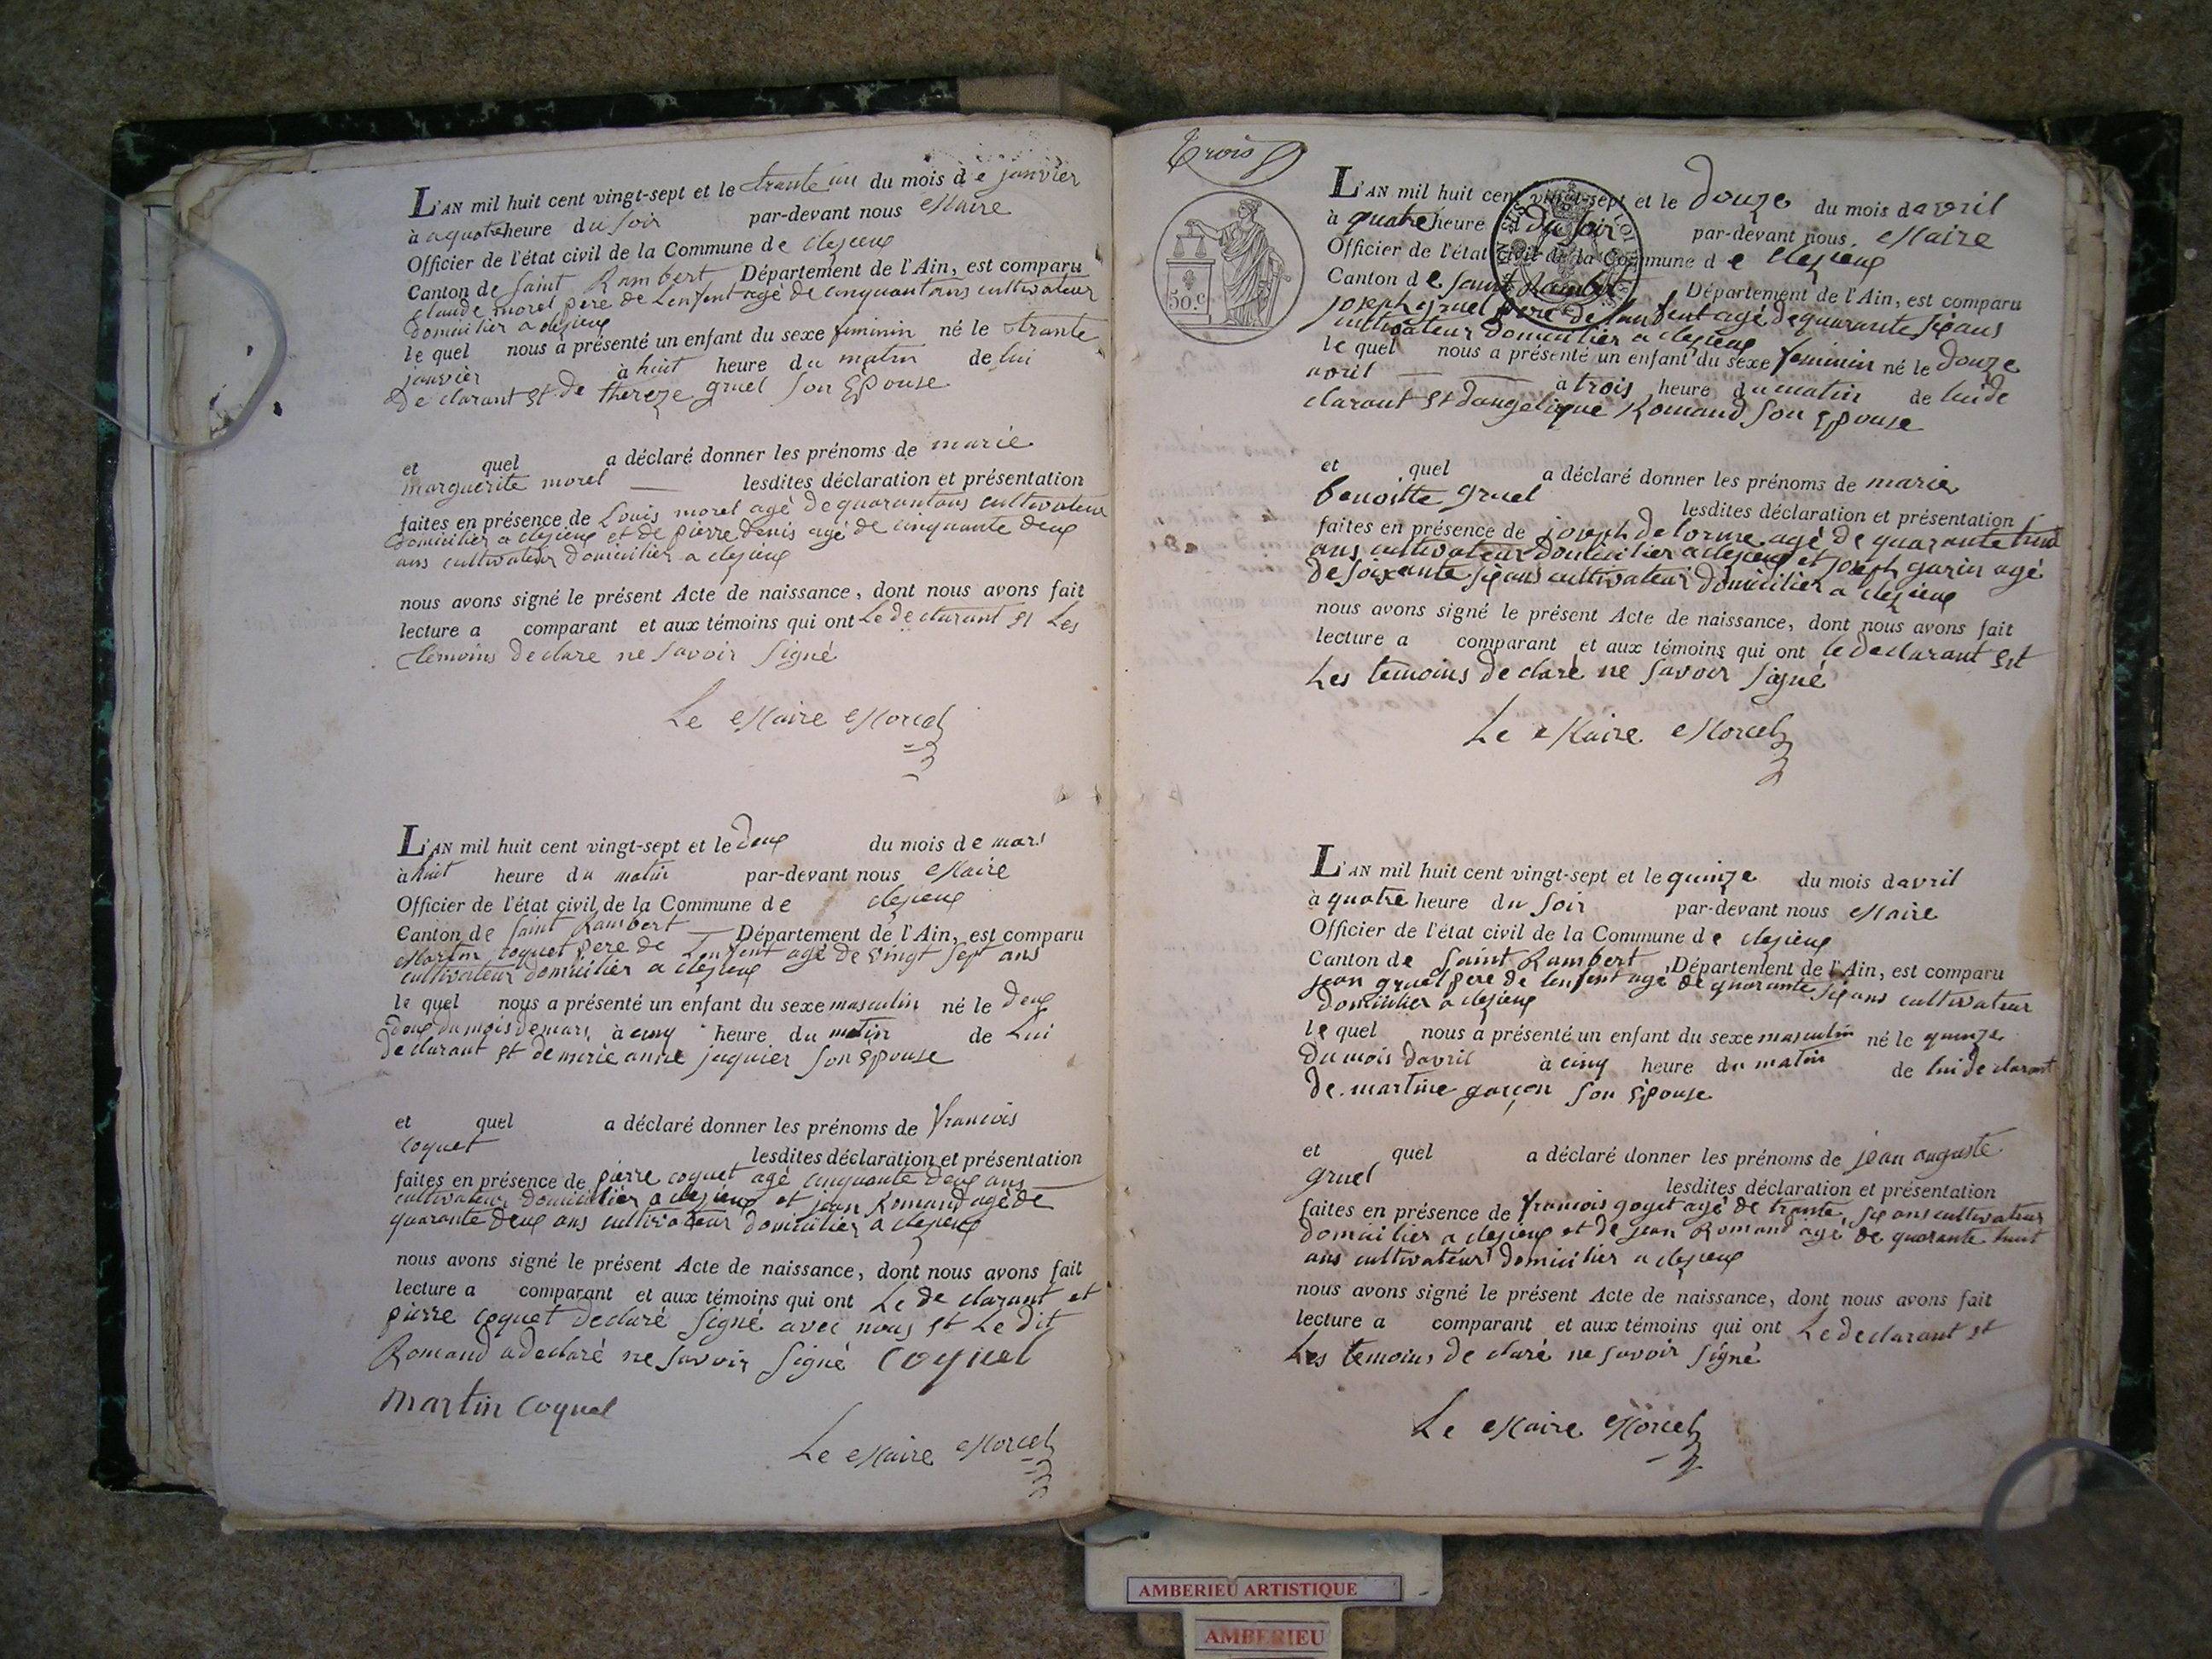 L'AN mil huit cent vingt-sept et le trante un du mois de janvier
à aquatre heure du soir par-devant nous Maire
Officier de l'état civil de la Commune de clezieux
Canton de Saint Rambert Département de l'Ain, est comparu
claude morel pere de Lenfent agé de cinquant ans cultivateur
domicilier a clezieux
le quel nous a présenté un enfant du sexe feminin né le trante
janvier à huit heure du matin de lui
De clarant et de thereze gruel son Epouse
et quel a déclaré donner les prénoms de marie
marguerite morel lesdites déclaration et présentation
faites en présence de Louis morel agé de quarantans cultivateur
domicilier a clezieux et de pierre denis agé de cinquante deux
ans cultivateur domicilier a clezieux
nous avons signé le présent Acte de naissance, dont nous avons fait
lecture a comparant et aux témoins qui ont Le de clarant et Les
temoins de clare ne savoir signé
Le Maire Morel
L'AN mil huit cent vingt-sept et le deux du mois de mars
à huit heure du matin par-devant nous Maire
Officier de l'état civil de la Commune de clezieux
Canton de Saint Rambert Département de l'Ain, est comparu
Martin coquet pere de Lenfent agé de vingt sept ans
cultivateur domicilier a clezieux
le quel nous a présenté un enfant du sexe masculin né le deux
deux du mois de mars à cinq heure du matin de Lui
De clarant et de marie anne juquier son epouse
et quel a déclaré donner les prénoms de francois
coquet lesdites déclaration et présentation
faites en présence de pierre coquet agé cinquante deux ans
cultivateur domicilier a clezieux et jean Romand agé de
quarante deux ans cultivateur domicilier a clezieux
nous avons signé le présent Acte de naissance, dont nous avons fait
lecture a comparant et aux témoins qui ont Le de clarant et
pierre coquet declaré signé avec nous et Le dit
Romand a declaré ne savoir signé coquet
martin coquet
Le Maire Morel
Trois
50.c
L'AN mil huit cent vingt-sept et le douze du mois davril
à quatre heure du soir par-devant nous Maire
Officier de l'état civil de la Commune de clezieux
Canton de Saint Rambert Département de l'Ain, est comparu
joseph gruel pere de lanfent agé de quarante six ans
cultivateur domicilier a clezieux
le quel nous a présenté un enfant du sexe feminin né le douze
avril à trois heure du matin de lui de
clarant et dangelique Romand son epouse
et quel a déclaré donner les prénoms de marie
benoitte gruel lesdites déclaration et présentation
faites en présence de joseph delorme agé de quarante huit
ans cultivateur domicilier a clezieux et joseph garin agé
de soixante six ans cultivateur domicilier a clezieux
nous avons signé le présent Acte de naissance, dont nous avons fait
lecture a comparant et aux témoins qui ont le de clarant et
Les temoins de claré ne savoir signé
Le Maire Morel
L'AN mil huit cent vingt-sept et le quinze du mois davril
à quatre heure du soir par-devant nous Maire
Officier de l'état civil de la Commune de clezieux
Canton de Saint Rambert Département de l'Ain, est comparu
jean gruel pere de lenfent agé de quarante six ans cultivateur
domicilier a clezieux
le quel nous a présenté un enfant du sexe masculin né le quinze
du mois davril à cinq heure du matin de lui de clarant
de martine garçon son epouse
et quel a déclaré donner les prénoms de jean auguste
gruel lesdites déclaration et présentation
faites en présence de francois goyet agé de trante six ans cultivateur
domicilier a clezieux et de jean Romand agé de quarante huit
ans cultivateur domicilier a clezieux
nous avons signé le présent Acte de naissance, dont nous avons fait
lecture a comparant et aux témoins qui ont Le de clarant et
Les temoins de claré ne savoir signé
Le Maire Morel
AMBERIEU ARTISTIQUE
AMBERIEU